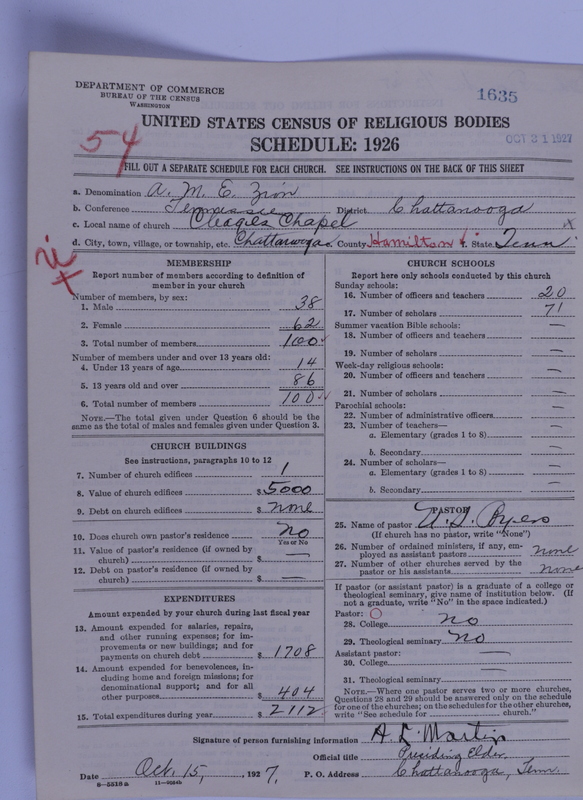 DEPARTMENT OF COMMERCE
BUREAU OF THE CENSUS
WASHINGTON
1635
UNITED STATES CENSUS OF RELIGIOUS BODIES
SCHEDULE: 1926
OCT 31 1927
54
FILL OUT A SEPARATE SCHEDULE FOR EACH CHURCH. SEE INSTRUCTIONS ON THE BACK OF THIS SHEET
a. Denomination A. M. E. Zion
b. Conference Tennessee District Chattanooga
c. Local name of church Cleages Chapel
d. City, town, village, or township, etc. Chattanooga e. County Hamilton f. State Tenn
MEMBERSHIP
Report number of members according to definition of
member in your church
Number of members, by sex:
1. Male 38
2. Female 62
3. Total number of members 100
Number of members under and over 13 years old:
4. Under 13 years of age 14
5. 13 years old and over 86
6. Total number of members 100
NOTE.—The total given under Question 6 should be the
same as the total of males and females given under Question 3.
CHURCH BUILDINGS
See instructions, paragraphs 10 to 12
7. Number of church edifices 1
8. Value of church edifices $ 5000
9. Debt on church edifices $ none
10. Does church own pastor's residence? no
Yes or No
11. Value of pastor's residence (if owned by
church) $ —
12. Debt on pastor's residence (if owned by
church) $ —
EXPENDITURES
Amount expended by your church during last fiscal year
13. Amount expended for salaries, repairs,
and other running expenses; for im-
provements or new buildings; and for
payments on church debt $ 1708
14. Amount expended for benevolences, in-
cluding home and foreign missions; for
denominational support; and for all
other purposes $ 404
15. Total expenditures during year $ 2112
CHURCH SCHOOLS
Report here only schools conducted by this church
Sunday schools:
16. Number of officers and teachers 20
17. Number of scholars 71
Summer vacation Bible schools:
18. Number of officers and teachers —
19. Number of scholars —
Week-day religious schools:
20. Number of officers and teachers —
21. Number of scholars —
Parochial schools:
22. Number of administrative officers —
23. Number of teachers—
a. Elementary (grades 1 to 8) —
b. Secondary —
24. Number of scholars—
a. Elementary (grades 1 to 8) —
b. Secondary —
PASTOR
25. Name of pastor Byers
(If church has no pastor, write "None")
26. Number of ordained ministers, if any, em-
ployed as assistant pastors none
27. Number of other churches served by the
pastor or his assistants none
If pastor (or assistant pastor) is a graduate of a college or
theological seminary, give name of institution below. (If
not a graduate, write "No" in the space indicated.)
Pastor:
28. College no
29. Theological seminary no
Assistant pastor:
30. College —
31. Theological seminary —
NOTE.—Where one pastor serves two or more churches,
Questions 28 and 29 should be answered only on the schedule
for one of the churches; on the schedules for the other churches,
write "See schedule for church."
Signature of person furnishing information A. L. Martin
Official title Presiding Elder
Date Oct. 15, , 1927. P. O. Address Chattanooga, Tenn.